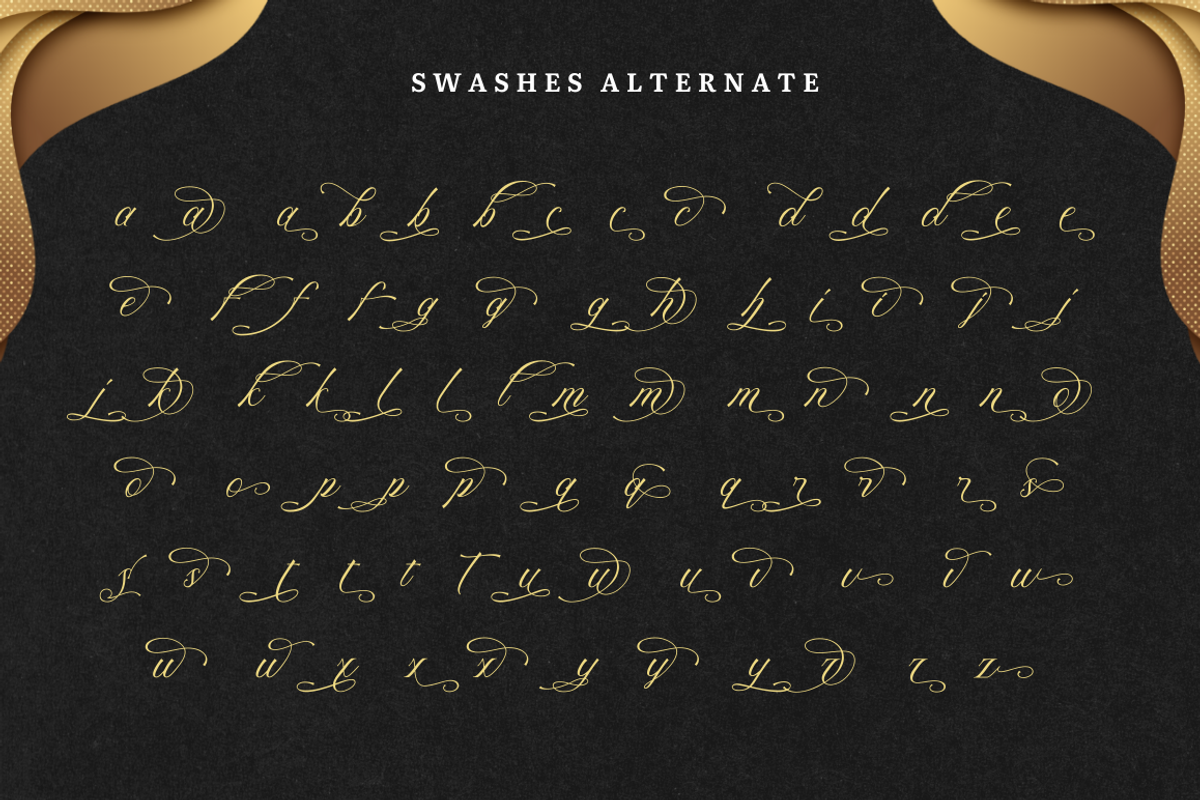 SWASHES ALTERNATE
a a a b b b c c c d d d e e
e f f f g g g h h i i j j
j k k k l l l m m m n n n o
o o p p p q q q r r r s
s s t t t T u u u v v v w
w w x x x y y y z z z